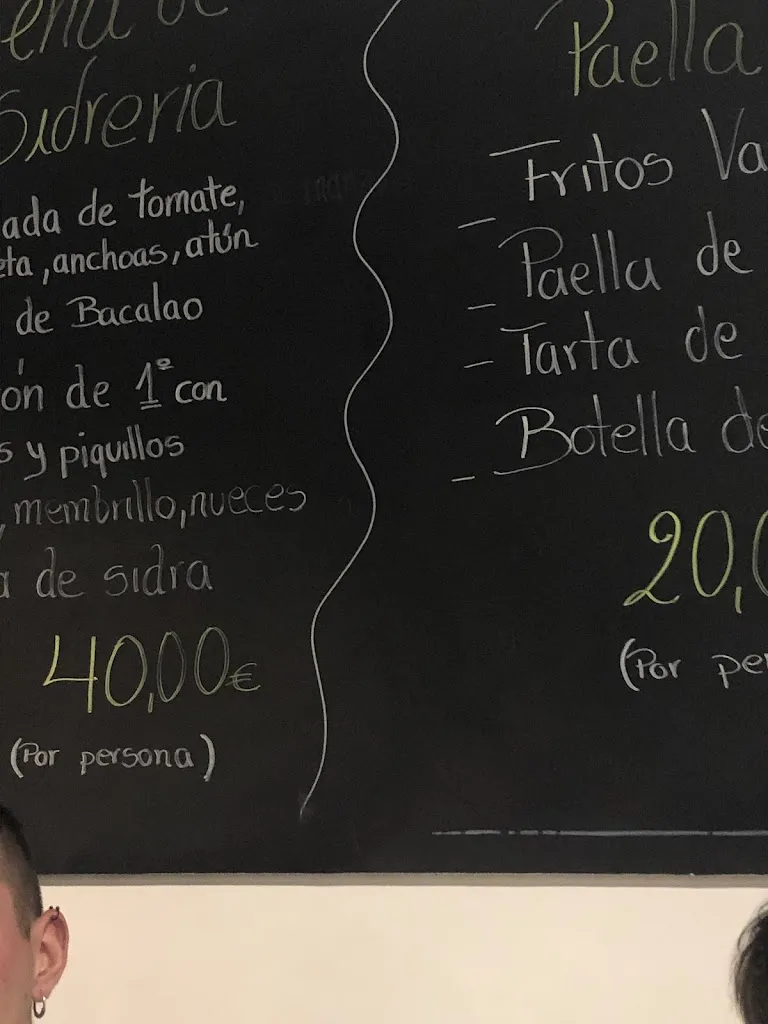 Sidreria
ada de tomate,
eta, anchoas, atún
de Bacalao
ón de 1º con
s y piquillos
, membrillo, nueces
a de sidra
40,00€
(Por persona)
Paella
- Fritos Va
- Paella de
- Tarta de
- Botella de
20,0
(Por per